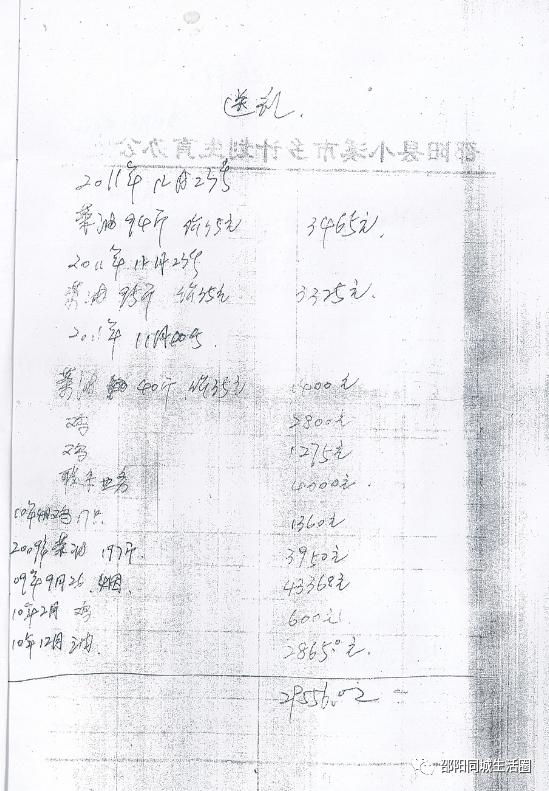 送礼.
邵阳县小溪市乡计划生育办公
2011年12月25号
菜油94斤 价35元 3465元.
2011年11月25号
菜油95斤 价35元 3325元.
2011年11月20号
菜油 40斤.价35元 1400元
鸡 2800元
鸡 1275元
联系业务 4000元
10年4月鸡17只 1360元
2009年菜油 197斤. 3950元
09年9月26.烟 4336元
10年2月 鸡 600元.
10年12月 2865元.
29556.0元
邵阳同城生活圈